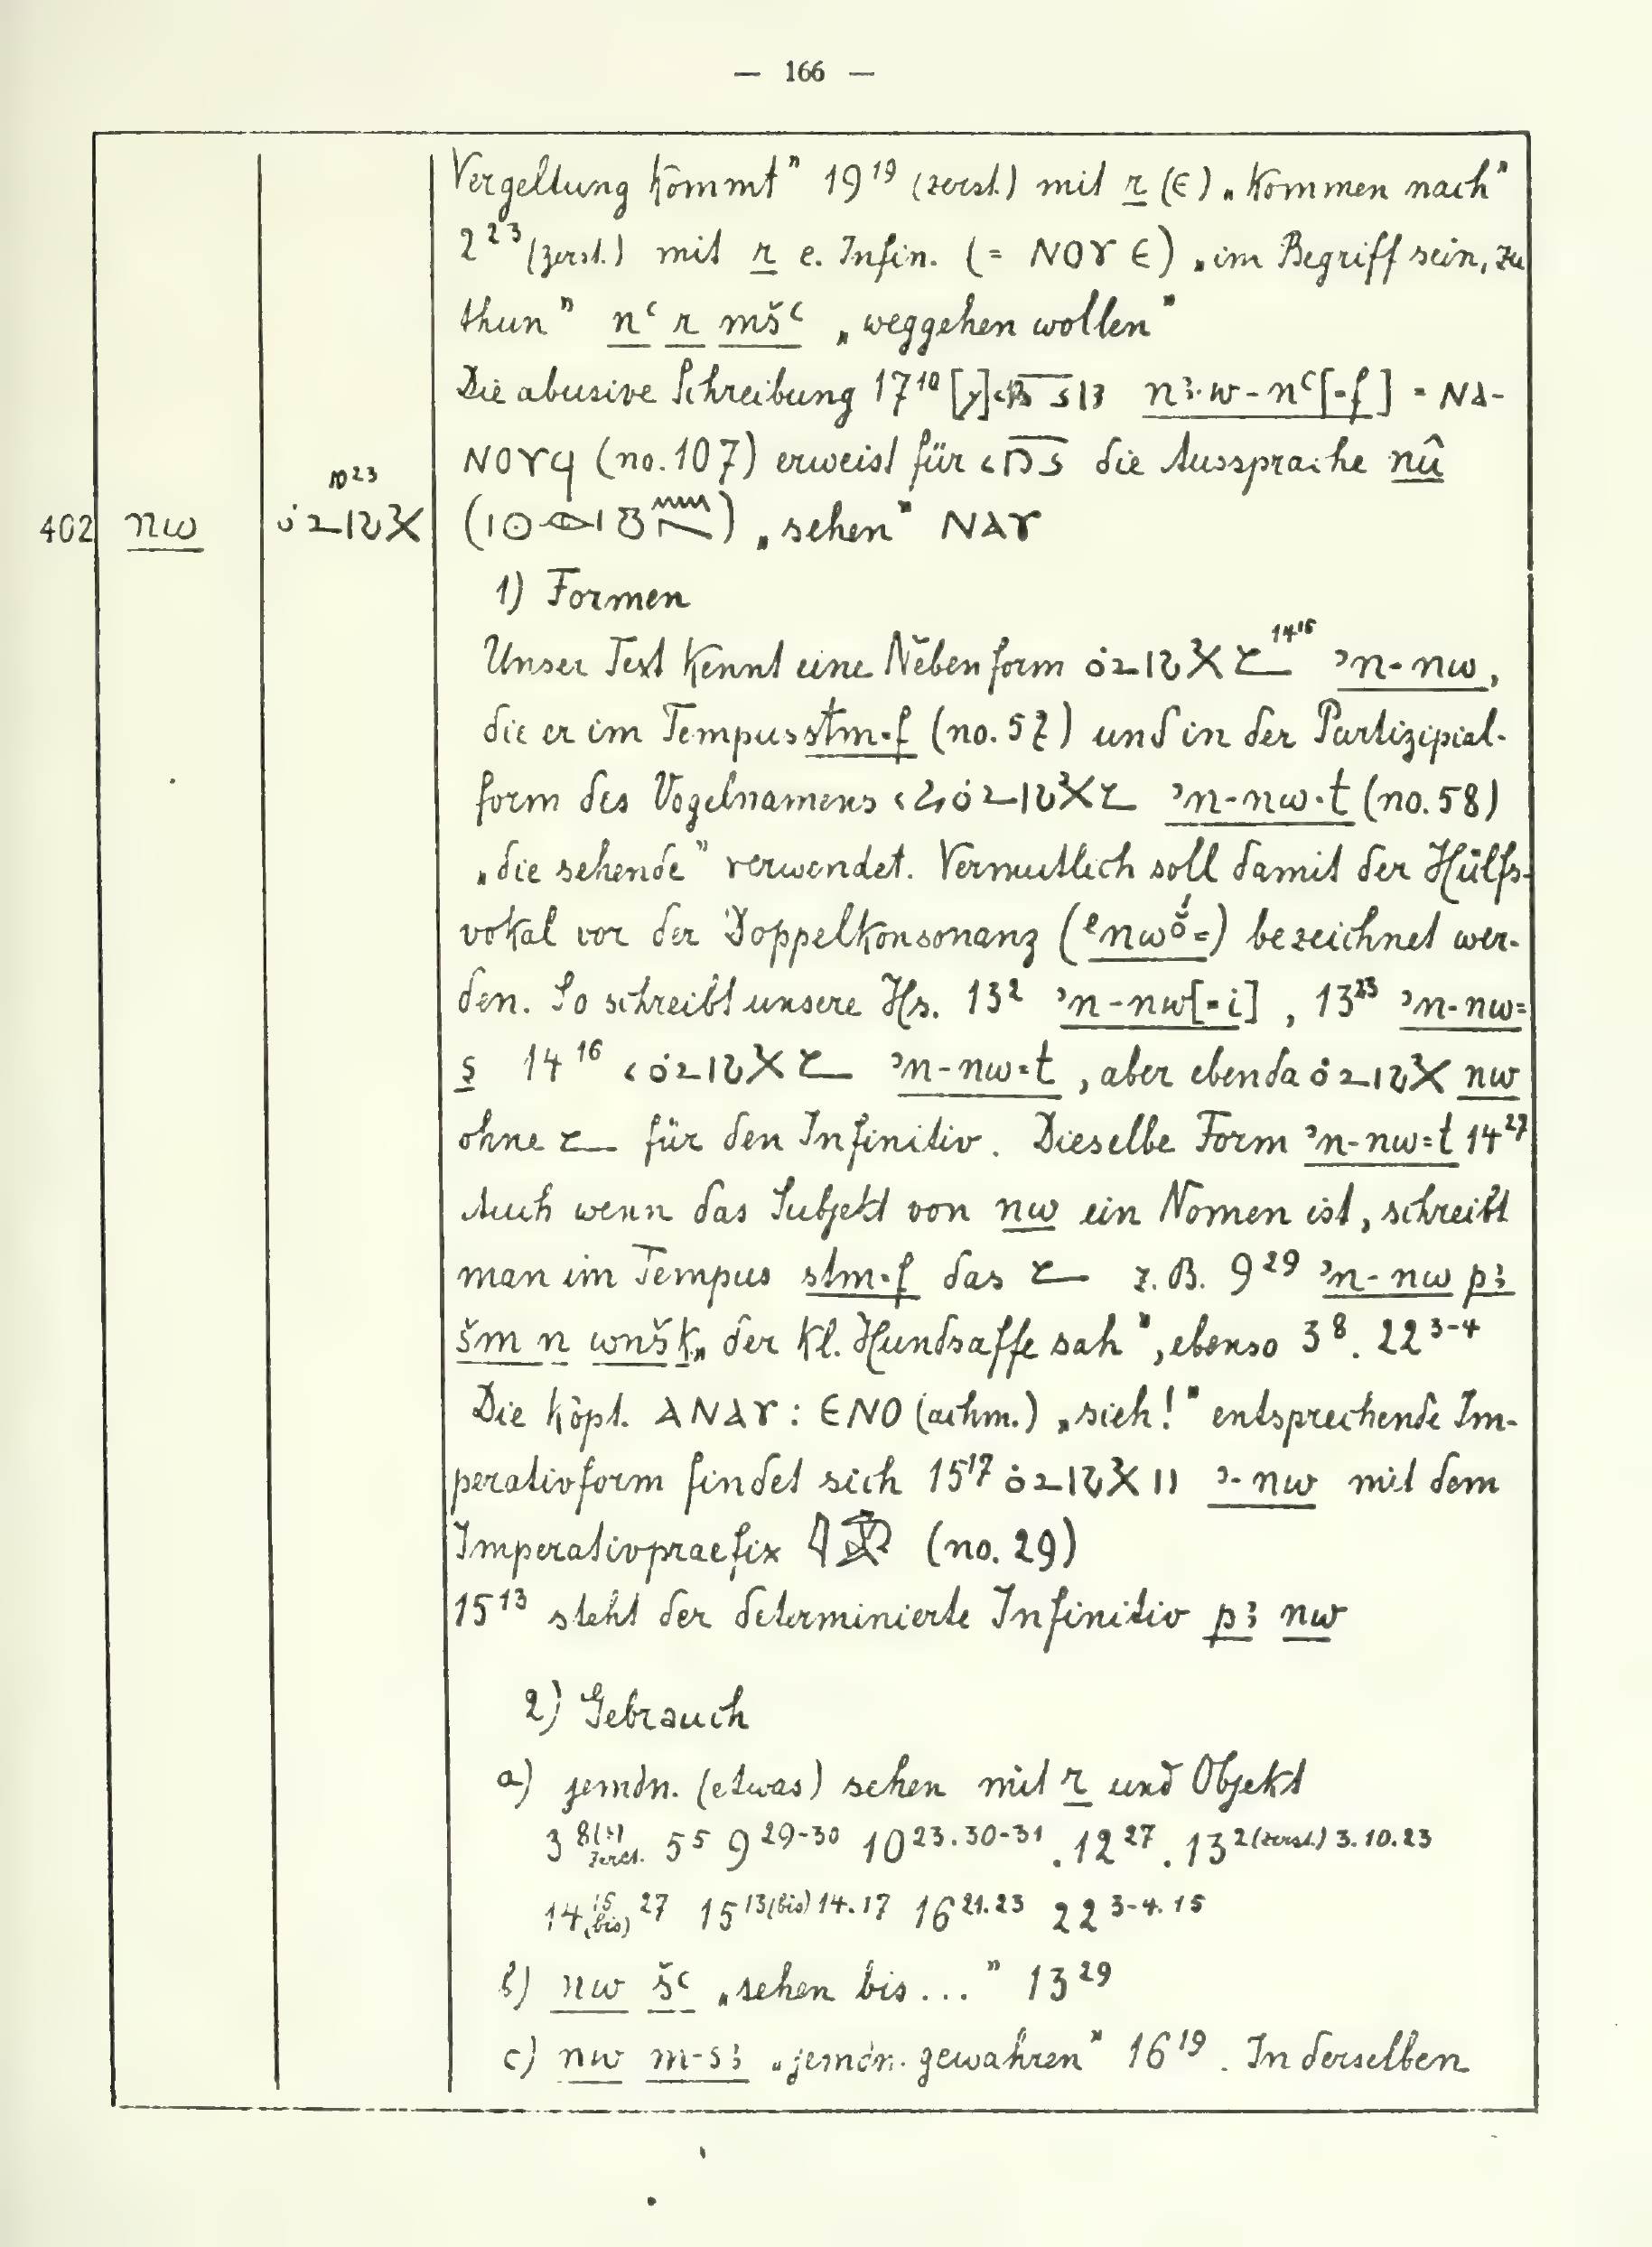 — 166 —
Vergeltung kommt" 19¹⁹ (zerst.) mit r (ϵ) „kommen nach"
2²³ (zerst.) mit r c. Infin. (= ⲚⲞⲨ Ⲉ) „im Begriff sein, zu
thun" nʿ r mšʿ „weggehen wollen"
Die abusive Schreibung 17¹⁰ nꜣ·w-nʿ[·f] = ⲚⲀ-
ⲚⲞⲨϤ (no. 107) erweist für die Aussprache nû
402 nw 10²³ „sehen" ⲚⲀⲨ
1) Formen
Unser Text kennt eine Nebenform 14¹⁶ ʾn-nw,
die er im Tempus stm·f (no. 57) und in der Partizipial-
form des Vogelnamens ʾn-nw·t (no. 58)
„die sehende" verwendet. Vermutlich soll damit der Hülfs-
vokal vor der Doppelkonsonanz (ᵉnwŏ́=) bezeichnet wer-
den. So schreibt unsere Hs. 13² ʾn-nw[=i], 13²³ ʾn-nw=
s 14¹⁶ ʾn-nw=t, aber ebenda nw
ohne für den Infinitiv. Dieselbe Form ʾn-nw=t 14²⁷
Auch wenn das Subjekt von nw ein Nomen ist, schreibt
man im Tempus stm·f das z. B. 9²⁹ ʾn-nw pꜣ
šm n wnš k „der kl. Hundsaffe sah", ebenso 3⁸. 22³⁻⁴
Die kopt. ⲀⲚⲀⲨ : ⲈⲚⲞ (achm.) „sieh!" entsprechende Im-
perativform findet sich 15¹⁷ ʾ-nw mit dem
Imperativpraefix (no. 29)
15¹³ steht der determinierte Infinitiv pꜣ nw
2) Gebrauch
a) jemdn. (etwas) sehen mit r und Objekt
3⁸ zerst. 5⁵ 9²⁹⁻³⁰ 10²³·³⁰⁻³¹. 12²⁷. 13² (zerst.) ³·¹⁰·²³
14¹⁶ (bis) ²⁷ 15¹³ (bis) ¹⁴·¹⁷ 16²¹·²³ 22³⁻⁴·¹⁵
b) nw šʿ „sehen bis ..." 13²⁹
c) nw m-sꜣ „jemdn. gewahren" 16¹⁹. In derselben